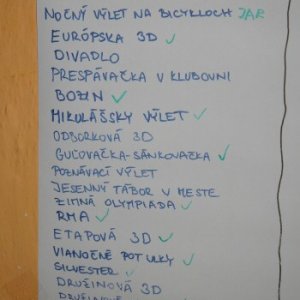 NOČNÝ VÝLET NA BICYKLOCH JAR
EURÓPSKA 3D ✓
DIVADLO
PRESPÁVAČKA V KLUBOVNI
BOZIN ✓
MIKULÁŠSKY VÝLET ✓
ODBORKOVÁ 3D
GUĽOVAČKA-SÁNKOVAČKA ✓
POZNÁVACÍ VÝLET
JESENNÝ TÁBOR V MESTE
ZIMNÁ OLYMPIADA ✓
RMA ✓
ETAPOVÁ 3D ✓
VIANOČNÉ POTULKY ✓
SILVESTER ✓
DRUŽINOVÁ 3D